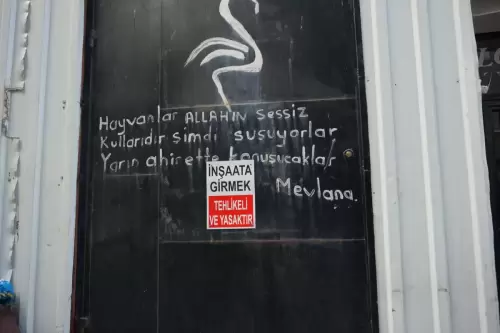 Hayvanlar ALLAHIN sessiz
Kullarıdır şimdi susuyorlar
Yarın ahirette konuşucaklar
Mevlana.
İNŞAATA
GİRMEK
TEHLİKELİ
VE YASAKTIR